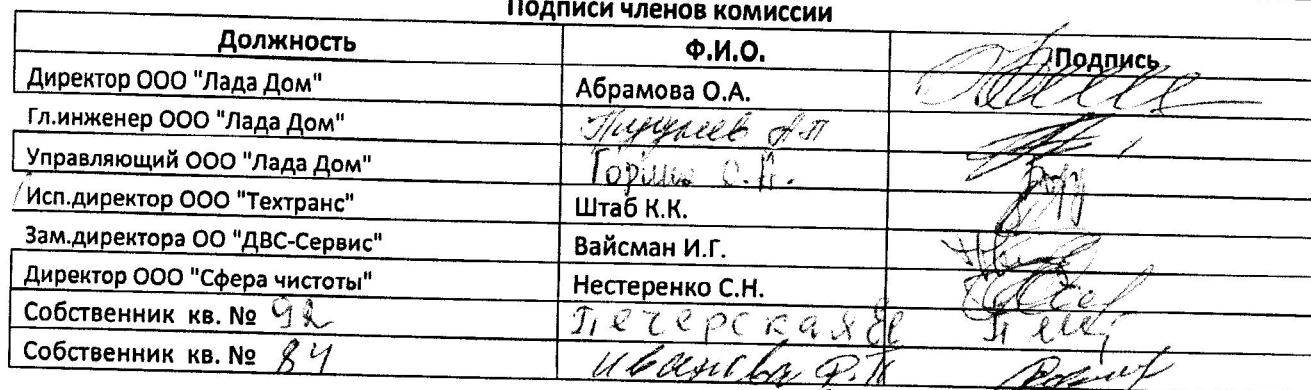 Подписи членов комиссии
Должность Ф.И.О. Подпись
Директор ООО "Лада Дом" Абрамова О.А.
Гл.инженер ООО "Лада Дом" А.П
Управляющий ООО "Лада Дом"
Исп.директор ООО "Техтранс" Штаб К.К.
Зам.директора ОО "ДВС-Сервис" Вайсман И.Г.
Директор ООО "Сфера чистоты" Нестеренко С.Н.
Собственник кв. № 92 Печерская
Собственник кв. № 84 Иванова